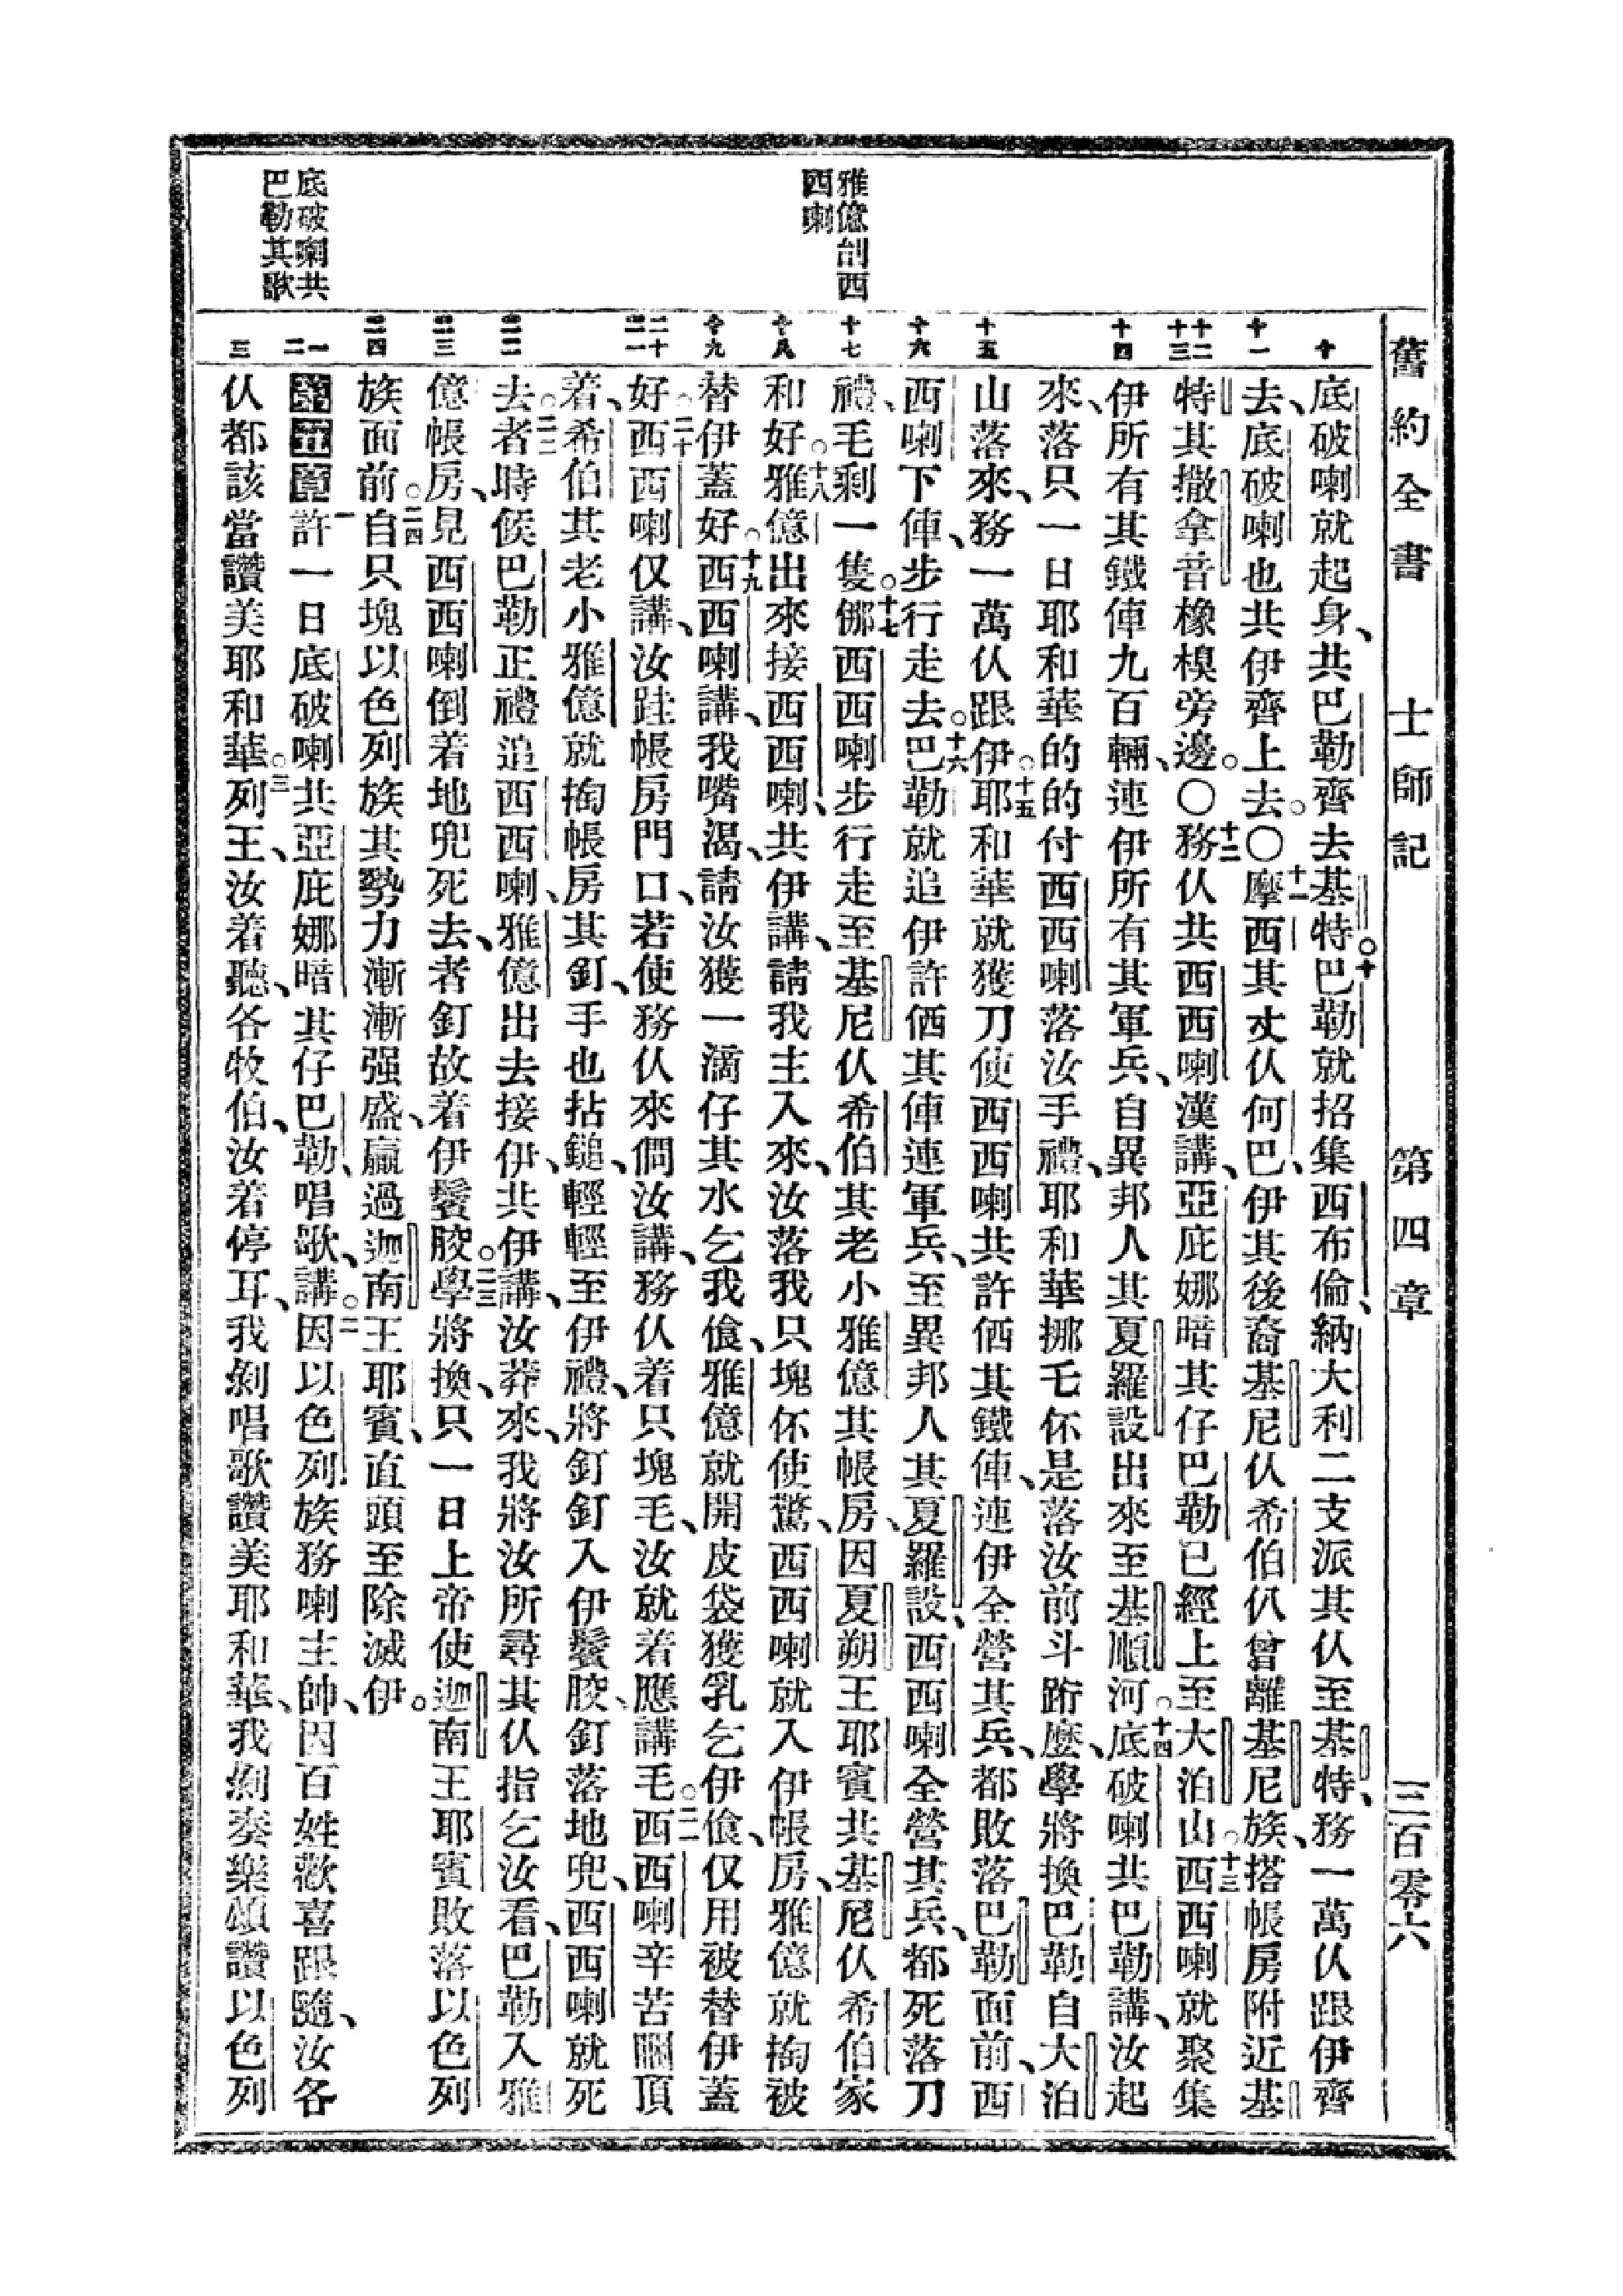 舊約全書　士師記　第四章　三百零六
底破喇就起身、共巴勒齊去基特。○十巴勒就招集西布倫、納大利二支派其仈至基特、務一萬仈跟伊齊
去、底破喇也共伊齊上去。○十一摩西其丈仈何巴、伊其後裔基尼仈希伯仈曾離基尼族、搭帳房附近基
特其撒拿音橡模旁邊。○十二務仈共西西喇漢講、亞庇娜暗其仔巴勒已經上至大泊山。十三西西喇就聚集
伊所有其鐵俥九百輛、連伊所有其軍兵、自異邦人其夏羅設出來至基順河。十四底破喇共巴勒講、汝起
來、落只一日耶和華的的付西西喇落汝手禮、耶和華挪乇伓是落汝前斗跻麼、學將換巴勒自大泊
山落來、務一萬仈跟伊。十五耶和華就獲刀使西西喇共許㑚其鐵俥、連伊全營其兵、都敗落巴勒面前、西
西喇下俥、步行走去。十六巴勒就追伊許㑚其俥連軍兵、至異邦人其夏羅設、西西喇全營其兵、都死落刀
禮、毛剩一隻。十七㑚西西喇步行走至基尼仈希伯其老小雅億其帳房、因夏朔王耶賓共基尼仈希伯家
和好。十八雅億出來接西西喇、共伊講、請我主入來、汝落我只塊伓使驚、西西喇就入伊帳房、雅億就掏被
替伊蓋好。十九西西喇講、我嘴渴、請汝獲一滴仔其水乞我飡、雅億就開皮袋獲乳乞伊飡、仅用被替伊蓋
好。二十西西喇仅講、汝跬帳房門口、若使務仈來問汝講、務仈着只塊毛、汝就着應講毛。二一西西喇辛苦睏頂
着、希伯其老小雅億就掏帳房其釘、手也拈鎚、輕輕至伊禮、將釘釘入伊鬢胶、釘落地兜、西西喇就死
去。二二者時候巴勒正禮追西西喇、雅億出去接伊、共伊講、汝莽來、我將汝所尋其仈指乞汝看、巴勒入雅
億帳房、見西西喇倒着地兜死去、者釘故着伊鬢胶。二三學將換、只一日上帝使迦南王耶賓敗落以色列
族面前。二四自只塊以色列族其勢力漸漸强盛、贏過迦南王耶賓、直頭至除滅伊。
第五章一許一日底破喇共亞庇娜暗其仔巴勒、唱歌、講。二因以色列族務喇主帥、因百姓歡喜跟隨、汝各
仈都該當讚美耶和華。三列王、汝着聽、各牧伯、汝着停耳、我㑚唱歌讚美耶和華、我㑚奏樂頌讚以色列
十
十一
十二
十三
十四
十五
十六
十七
十八
十九
二十
二一
二二
二三
二四
一
二
三
雅億剖西
西喇
底破喇共
巴勒其歌